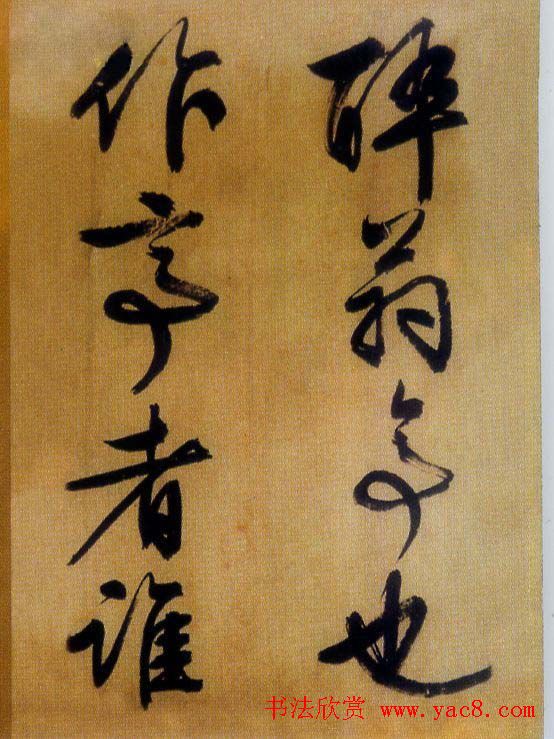 醉翁亭也
作亭者誰
书法欣赏 www.yac8.com